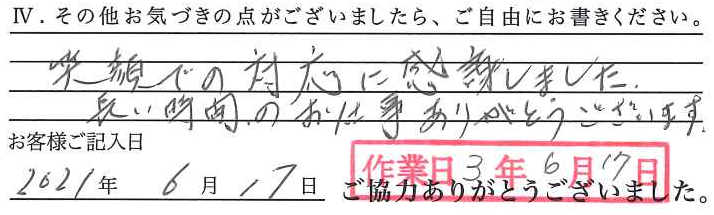 Ⅳ．その他お気づきの点がございましたら、ご自由にお書きください。
笑顔での対応に感謝しました.
長い時間.のお仕事ありがとうございます.
お客様ご記入日
2021年 6月 17日
作業日3年6月17日
ご協力ありがとうございました。